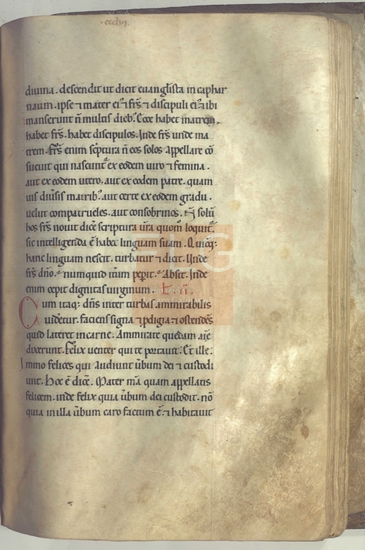 diuina. descendit ut dicit euanglista in caphar
naum. ipse & mater ei⁹ & frs̄ & discipuli ei⁹ & ibi
manserunt n̄ multis dieb⁹. Ecce habet matrem.
habet frs̄. habet discipulos. Inde frs̄ unde ma
trem. Frs̄ enim scriptura n̄ eos solos appellare co
sueuit qui nascunt̄ ex eodem uiro & femina.
aut ex eodem utero. aut ex eodem patre. quam
uis diuisis matrib⁹. aut certe ex eodem gradu.
uelut compatrueles. aut consobrinos. solū
hos frs̄ nouit dicere scriptura n̄ra quom̄ loquit̄.
sic intelligenda ē habet linguam suam. Q
hanc linguam nescit. turbatur & dicit. Unde
frs̄ dn̄o. numquid itm̄ pepit. Absit. Inde
cum cepit dignitas uirginum.
Cum itaq; dn̄s inter turbas ammirabilis
uidetur. faciens signa & pdigia & ostendēs
quid lateret in carne. Ammirate quedam aīe
dixerunt. Felix uenter qui te portauit. Et ille.
immo felices qui audiunt ūbum dei & custodi
unt. Hoc ē dicē. Mater m̄a quam appellatis
felicem. inde felix quia ūbum dei custodit. nō
quia in illa ūbum caro factum ē. & habitauit